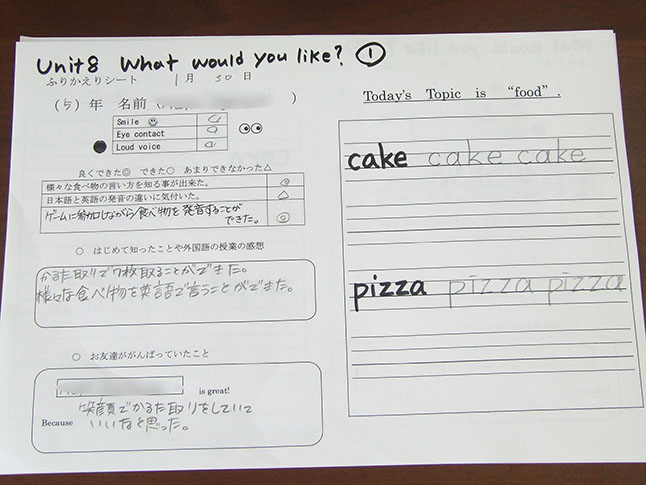 Unit8 What would you like? ①
ふりかえりシート 1月 30日
(5)年 名前( )
Smile ☺ ○
Eye contact ○
Loud voice ○
良くできた◎ できた○ あまりできなかった△
様々な食べ物の言い方を知る事が出来た。 ◎
日本語と英語の発音の違いに気付いた。 △
ゲームに参加しながら食べ物を発音することが
できた。 ◎
○ はじめて知ったことや外国語の授業の感想
かるた取りで7枚取ることができた。
様々な食べ物を英語で言うことができた。
○ お友達ががんばっていたこと
is great!
Because 笑顔でかるた取りをしていて
いいなと思った。
Today's Topic is “food”.
cake cake cake
pizza pizza pizza